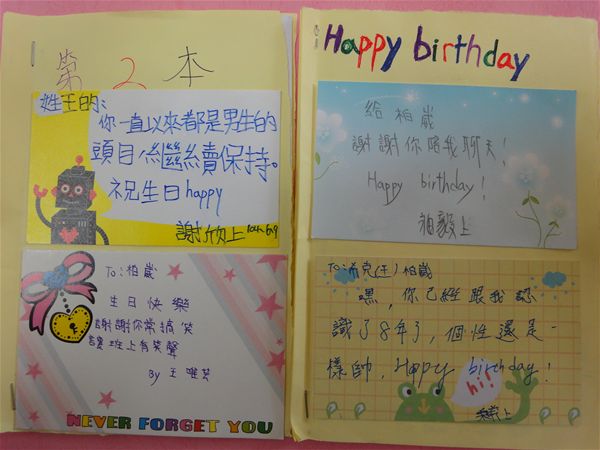 第2本
姓王的:
你一直以來都是男生的
頭目,繼續保持。
祝生日happy
謝欣上 104.6.9
To:柏崴
生日快樂
謝謝你常搞笑
讓班上有笑聲
By 王唯芸
NEVER FORGET YOU
Happy birthday
給柏崴
謝謝你陪我聊天!
Happy birthday!
柏毅上
To:希克(王)柏崴
嘿,你已經跟我認
識了8年了,個性還是一
樣帥,Happy birthday!
hi!
上